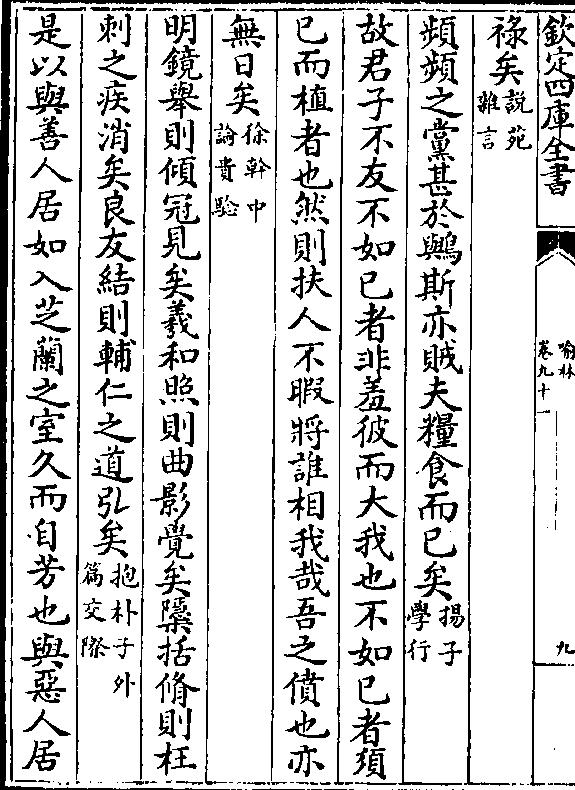 欽定四庫全書
喻林
卷九十一
九
祿矣說苑
雜言
頻頻之黨甚於鸒斯亦賊夫糧食而已矣揚子
學行
故君子不友不如己者非羞彼而大我也不如己者須
己而植者也然則扶人不暇將誰相我哉吾之僨也亦
無日矣徐幹中
論貴驗
明鏡舉則傾冠見矣羲和照則曲影覺矣檃括脩則枉
刺之疾消矣良友結則輔仁之道弘矣抱朴子外
篇交際
是以與善人居如入芝蘭之室久而自芳也與惡人居